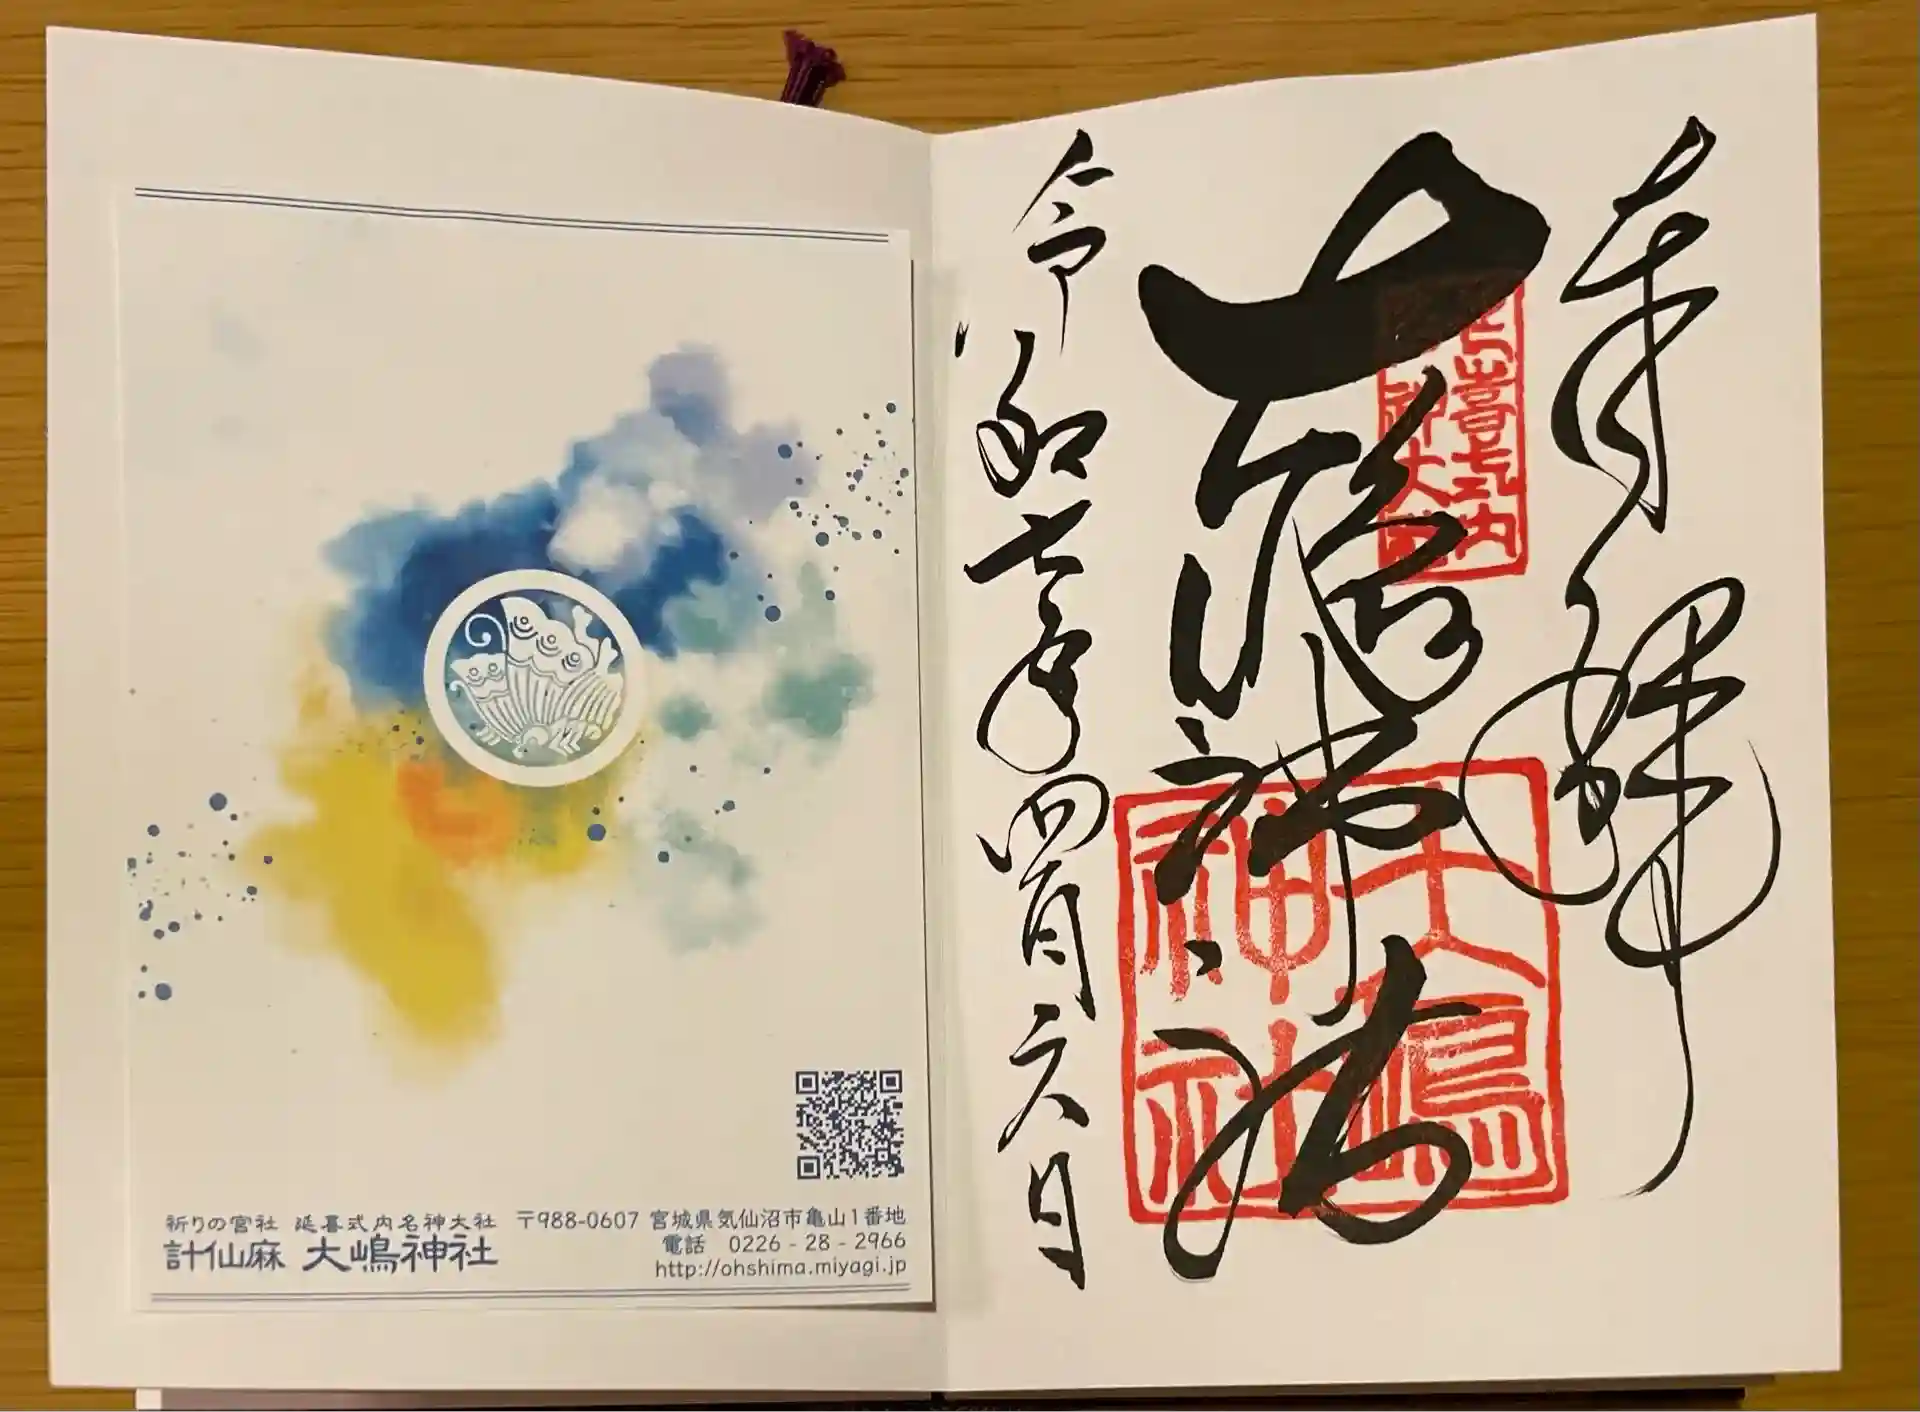 奉拝
大嶋神社
令和七年四月六日
延喜式内
名神大社
大嶋
神社
祈りの宮社 延喜式内名神大社
計仙麻 大嶋神社
〒988-0607 宮城県気仙沼市亀山1番地
電話 0226-28-2966
http://ohshima.miyagi.jp